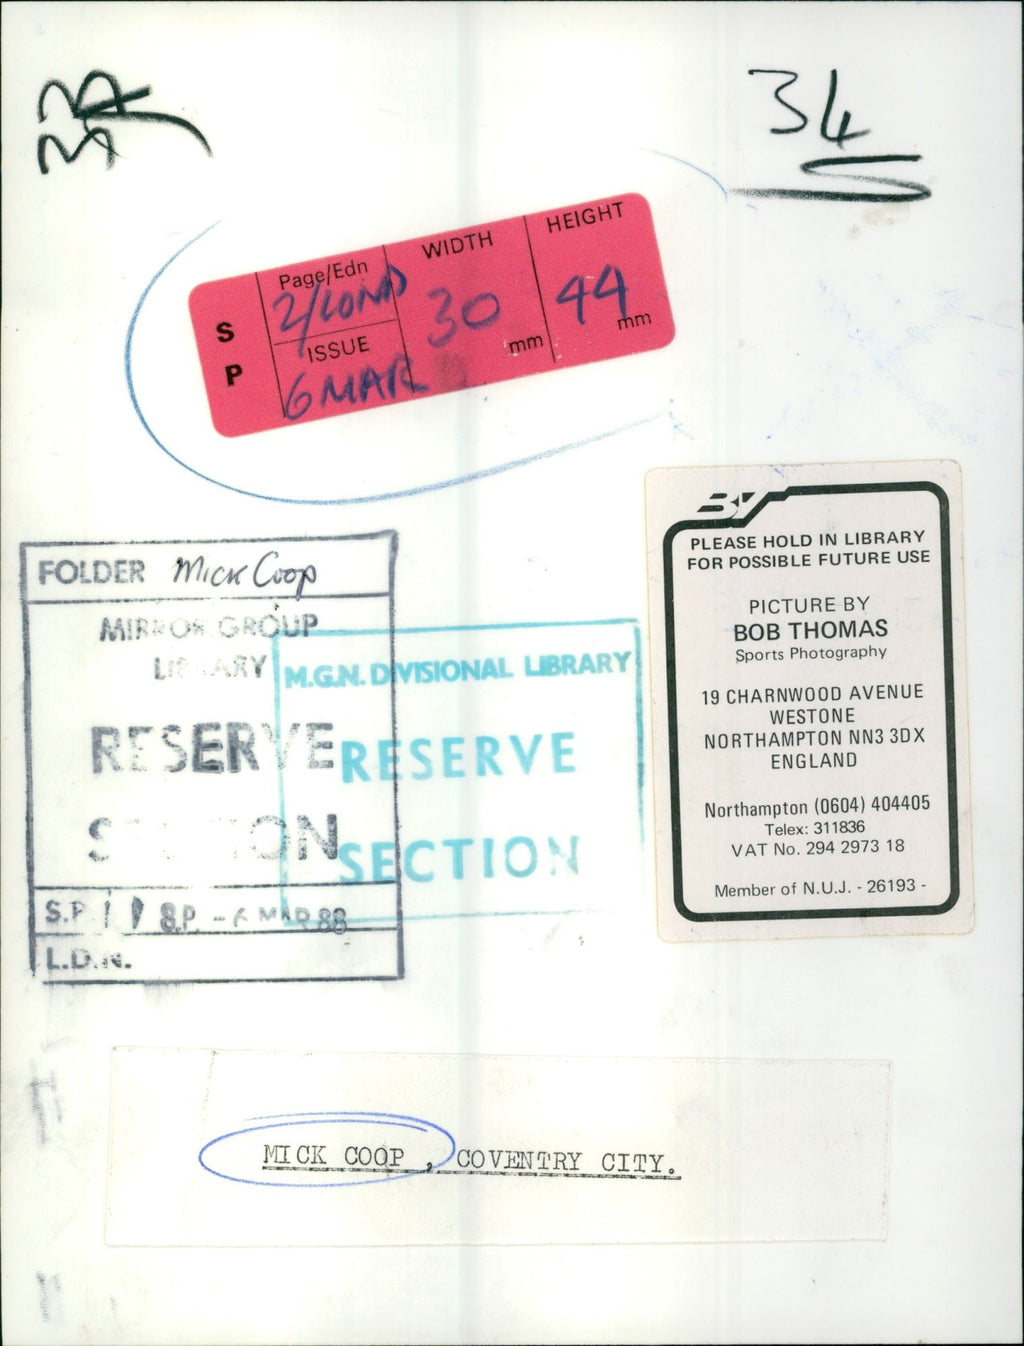 34
S
P
Page/Edn
2/LOND
ISSUE
6 MAR
WIDTH
30
mm
HEIGHT
44
mm
FOLDER Mick Coop
MIRROR GROUP
LIBRARY
RESERVE
SECTION
S.P. S.P. - 6 MAR 88
L.D.N.
M.G.N. DIVISIONAL LIBRARY
RESERVE
SECTION
BT
PLEASE HOLD IN LIBRARY
FOR POSSIBLE FUTURE USE
PICTURE BY
BOB THOMAS
Sports Photography
19 CHARNWOOD AVENUE
WESTONE
NORTHAMPTON NN3 3DX
ENGLAND
Northampton (0604) 404405
Telex: 311836
VAT No. 294 2973 18
Member of N.U.J. - 26193 -
MICK COOP, COVENTRY CITY.